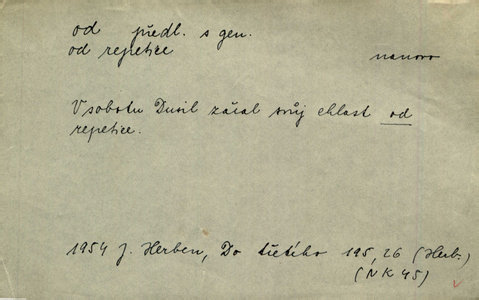 od předl. s gen.
od repetice nanovo
V sobotu Dusil začal svůj chlast od
repetice.
1954 J. Herben, Do třetího 195, 26 (Herb.)
(NK 45)